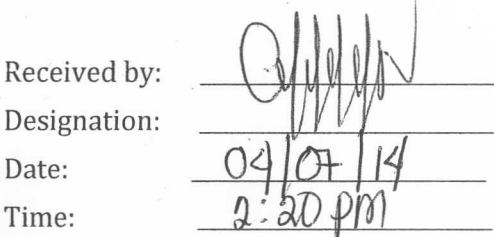 Received by:
Designation:
Date: 04/07/14
Time: 2:20 pm